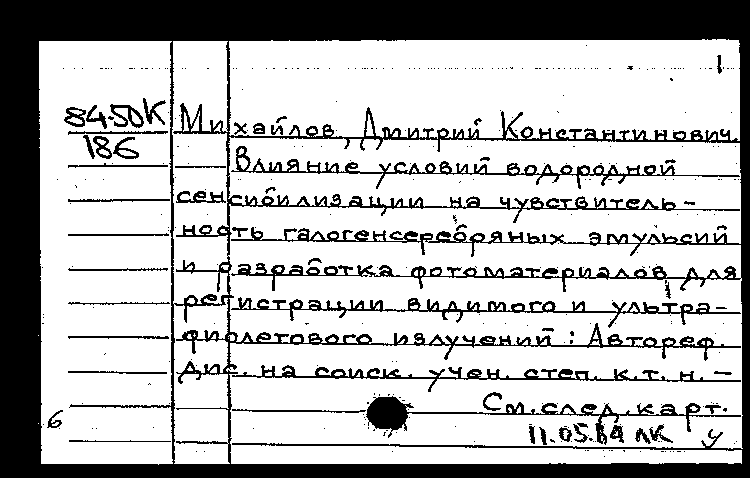 1
84-50К Михайлов, Дмитрий Константинович.
186 Влияние условий водородной
сенсибилизации на чувствитель-
ность галогенсеребряных эмульсий
и разработка фотоматериалов для
регистрации видимого и ультра-
фиолетового излучений : Автореф.
дис. на соиск. учен. степ. к.т.н. –
См. след. карт.
6 11.05.84 ЛК у